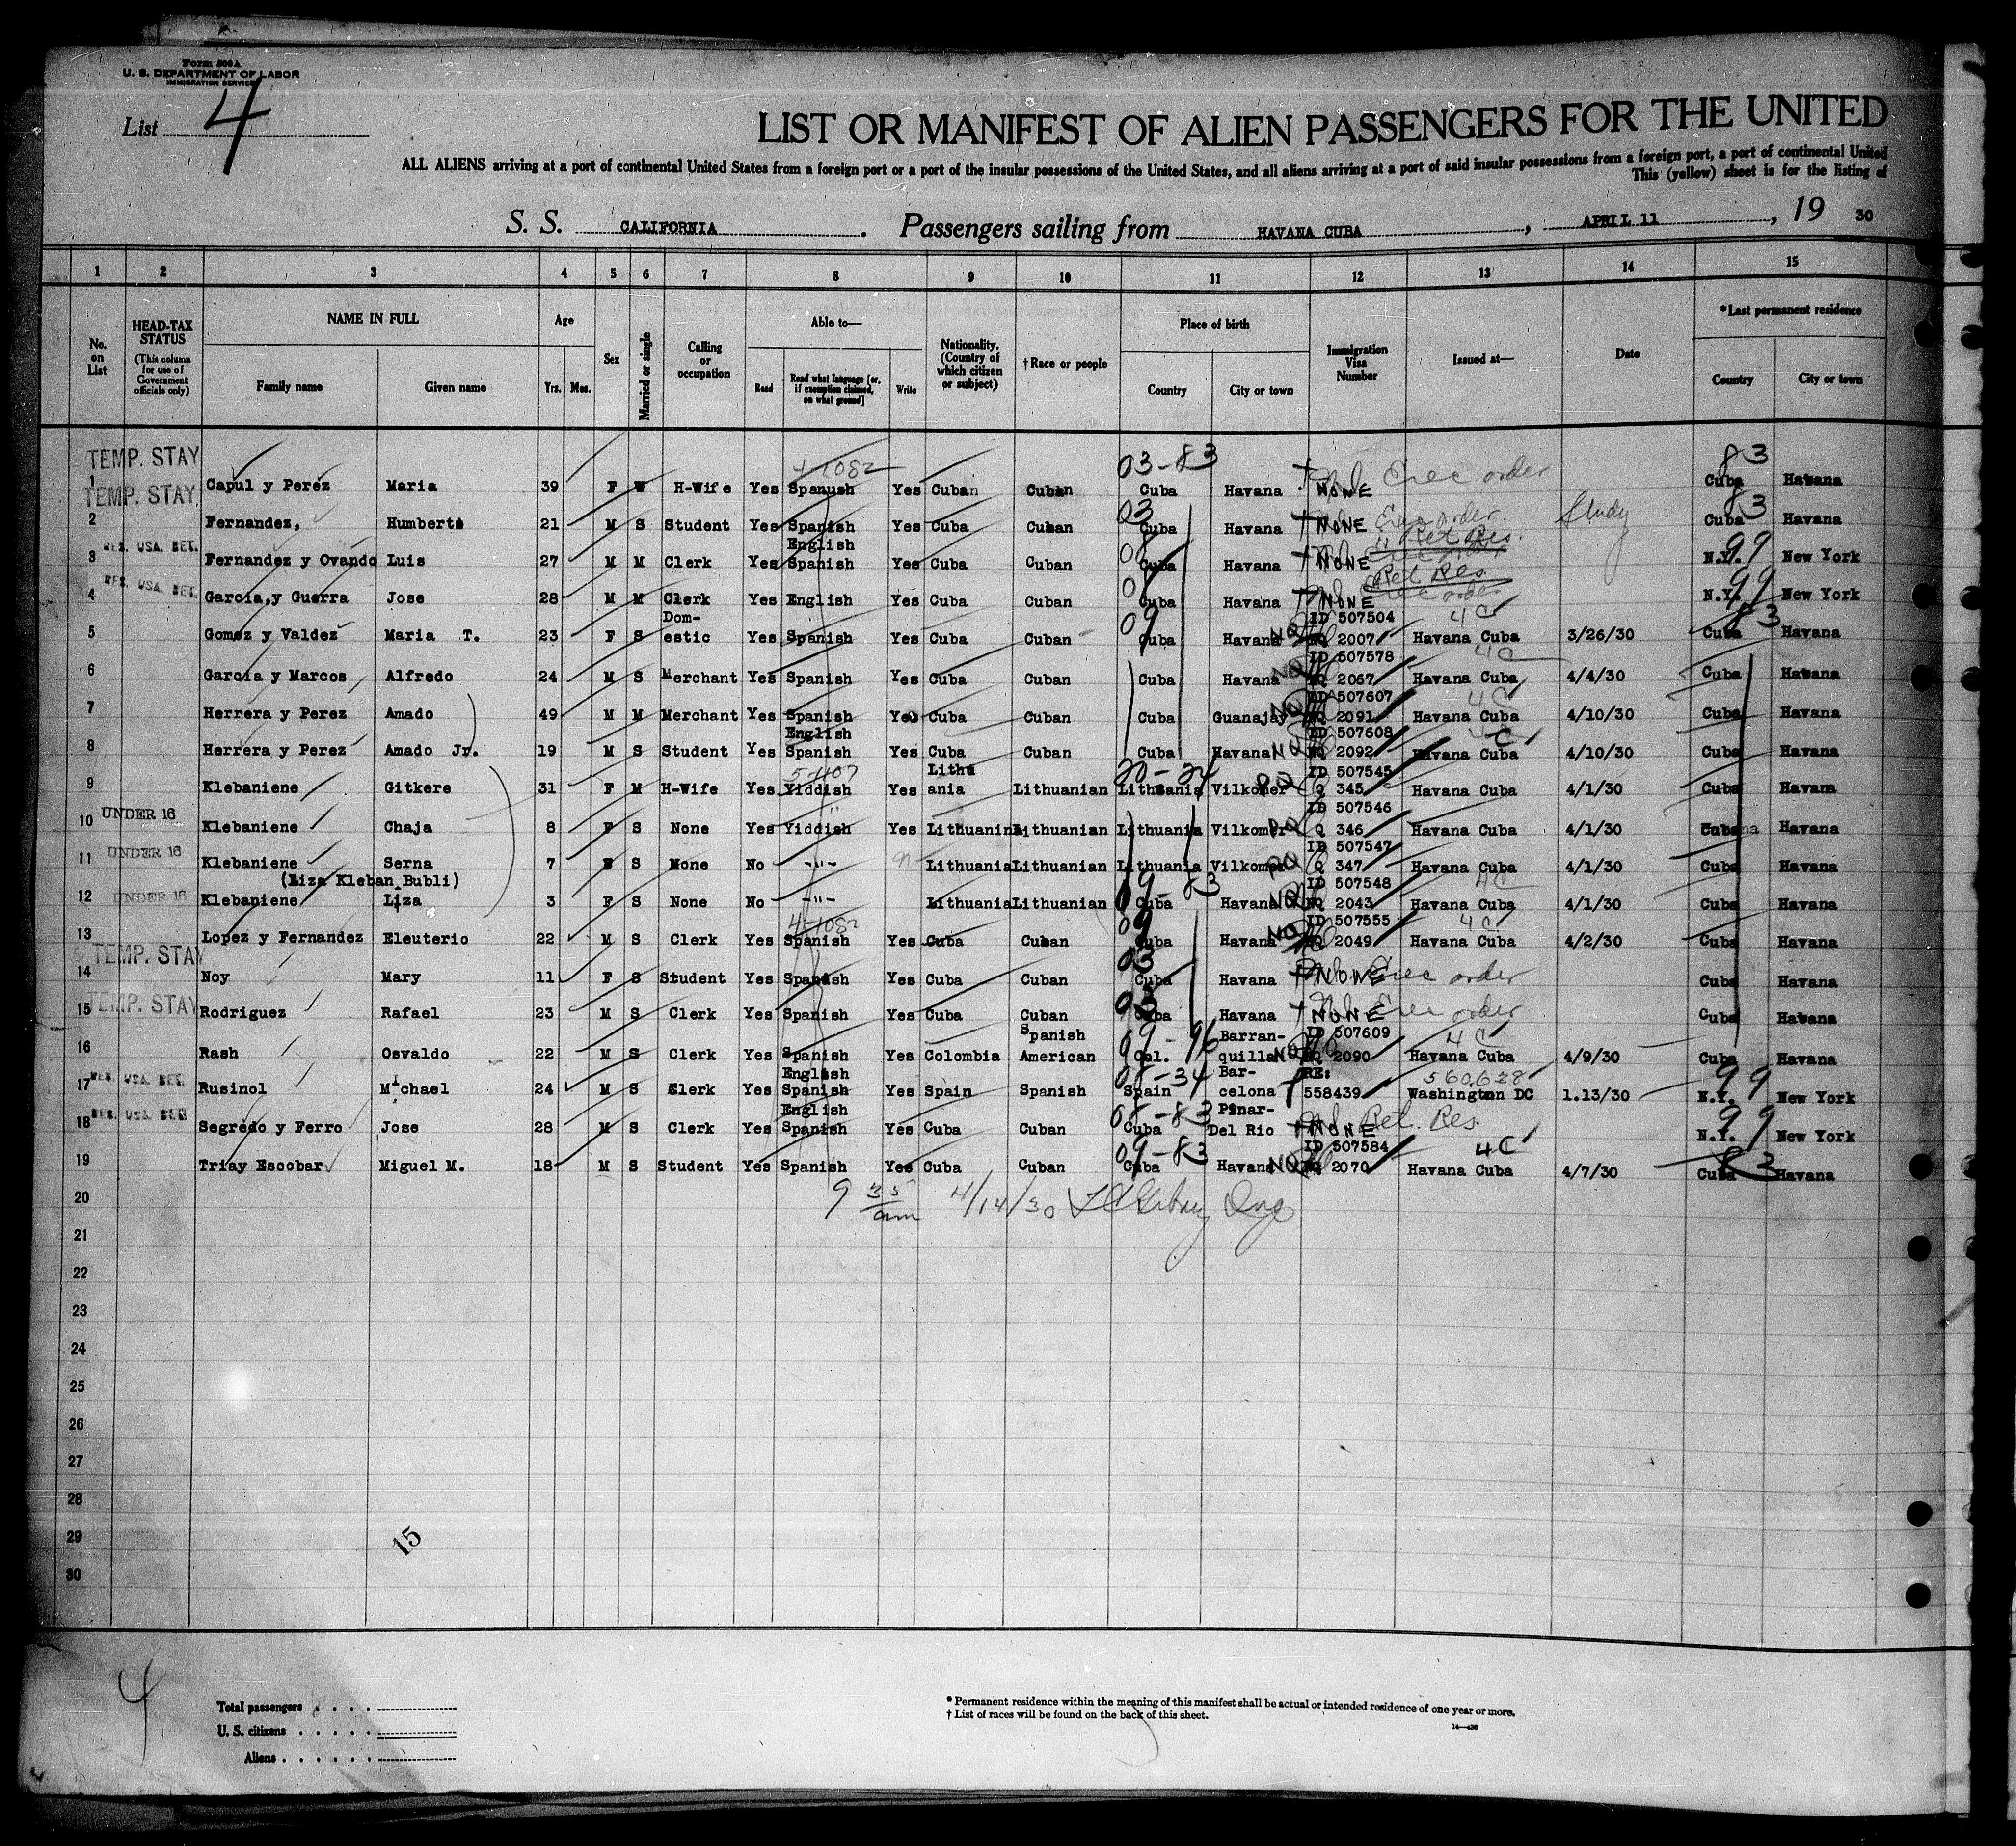 Form 500A
U. S. DEPARTMENT OF LABOR
IMMIGRATION SERVICE
List 4
LIST OR MANIFEST OF ALIEN PASSENGERS FOR THE UNITED
ALL ALIENS arriving at a port of continental United States from a foreign port or a port of the insular possessions of the United States, and all aliens arriving at a port of said insular possessions from a foreign port, a port of continental United
This (yellow) sheet is for the listing of
S. S. CALIFORNIA . Passengers sailing from HAVANA CUBA , APRIL 11 , 19 30
1 2 3 4 5 6 7 8 9 10 11 12 13 14 15
No. on List
HEAD-TAX STATUS (This column for use of Government officials only)
NAME IN FULL Family name Given name
Age Yrs. Mos.
Sex
Married or single
Calling or occupation
Able to— Read Read what language [or, if exemption claimed, on what ground] Write
Nationality. (Country of which citizen or subject)
†Race or people
Place of birth Country City or town
Immigration Visa Number
Issued at—
Date
*Last permanent residence Country City or town
TEMP. STAY 4-1082 03-83 83
1 Capul y Perez Maria 39 F W H-Wife Yes Spanush Yes Cuban Cuban Cuba Havana NONE Exec order Cuba Havana
TEMP. STAY 03 83
2 Fernandez, Humberto 21 M S Student Yes Spanish Yes Cuba Cuban Cuba Havana NONE Exec order Study Cuba Havana
RES. USA. RET. English Ret Res. 99
3 Fernandez y Ovando Luis 27 M M Clerk Yes Spanish Yes Cuba Cuban Cuba Havana NONE N.Y. New York
RES. USA. RET. Ret Res 99
4 Garcia,y Guerra Jose 28 M M Clerk Yes English Yes Cuba Cuban Cuba Havana NONE N.Y. New York
Dom- 09 ID 507504 4C 83
5 Gomez y Valdez Maria T. 23 F S estic Yes Spanish Yes Cuba Cuban Cuba Havana NQ 2007 Havana Cuba 3/26/30 Cuba Havana
ID 507578 4C
6 Garcia y Marcos Alfredo 24 M S Merchant Yes Spanish Yes Cuba Cuban Cuba Havana NQ 2067 Havana Cuba 4/4/30 Cuba Havana
ID 507607 4C
7 Herrera y Perez Amado 49 M M Merchant Yes Spanish Yes Cuba Cuban Cuba Guanajay NQ 2091 Havana Cuba 4/10/30 Cuba Havana
English ID 507608 4C
8 Herrera y Perez Amado Jr. 19 M S Student Yes Spanish Yes Cuba Cuban Cuba Havana NQ 2092 Havana Cuba 4/10/30 Cuba Havana
5-1107 Lithu 20-24 ID 507545
9 Klebaniene Gitkere 31 F M H-Wife Yes Yiddish Yes ania Lithuanian Lithuania Vilkomer Q 345 Havana Cuba 4/1/30 Cuba Havana
UNDER 16 ID 507546
10 Klebaniene Chaja 8 F S None Yes Yiddish Yes Lithuanina Lithuanian Lithuania Vilkomer Q 346 Havana Cuba 4/1/30 Cuba Havana
UNDER 16 ID 507547
11 Klebaniene Serna 7 S None No -"- Lithuania Lithuanian Lithuania Vilkomer Q 347 Havana Cuba 4/1/30 Cuba Havana
(Liza Kleban Bubli) 09-83 ID 507548 4C
UNDER 16
12 Klebaniene Liza 3 F S None No -"- Lithuania Lithuanian Cuba Havana NQ 2043 Havana Cuba 4/1/30 Cuba Havana
4-1082 09 ID 507555 4C
13 Lopez y Fernandez Eleuterio 22 M S Clerk Yes Spanish Yes Cuba Cuban Cuba Havana NQ 2049 Havana Cuba 4/2/30 Cuba Havana
TEMP. STAY 03
14 Noy Mary 11 F S Student Yes Spanish Yes Cuba Cuban Cuba Havana NONE Exec order Cuba Havana
TEMP. STAY 03
15 Rodriguez Rafael 23 M S Clerk Yes Spanish Yes Cuba Cuban Cuba Havana NONE Exec order Cuba Havana
Spanish 09-96 Barran- ID 507609 4C
16 Rash Osvaldo 22 M S Clerk Yes Spanish Yes Colombia American Col. quilla NQ 2090 Havana Cuba 4/9/30 Cuba Havana
RES. USA. RET. English 08-34 Bar- RE: 560,628 99
17 Rusinol Michael 24 M S Clerk Yes Spanish Yes Spain Spanish Spain celona 558439 Washington DC 1.13/30 N.Y. New York
RES. USA. RET. English 08-83 Pinar- Ret. Res. 99
18 Segredo y Ferro Jose 28 M S Clerk Yes Spanish Yes Cuba Cuban Cuba Del Rio NONE N.Y. New York
09-83 ID 507584 4C 83
19 Triay Escobar Miguel M. 18 M S Student Yes Spanish Yes Cuba Cuban Cuba Havana NQ 2070 Havana Cuba 4/7/30 Cuba Havana
20 9 35 am 4/14/30
21
22
23
24
25
26
27
28
29 15
30
4
Total passengers
U. S. citizens
Aliens
* Permanent residence within the meaning of this manifest shall be actual or intended residence of one year or more.
† List of races will be found on the back of this sheet.